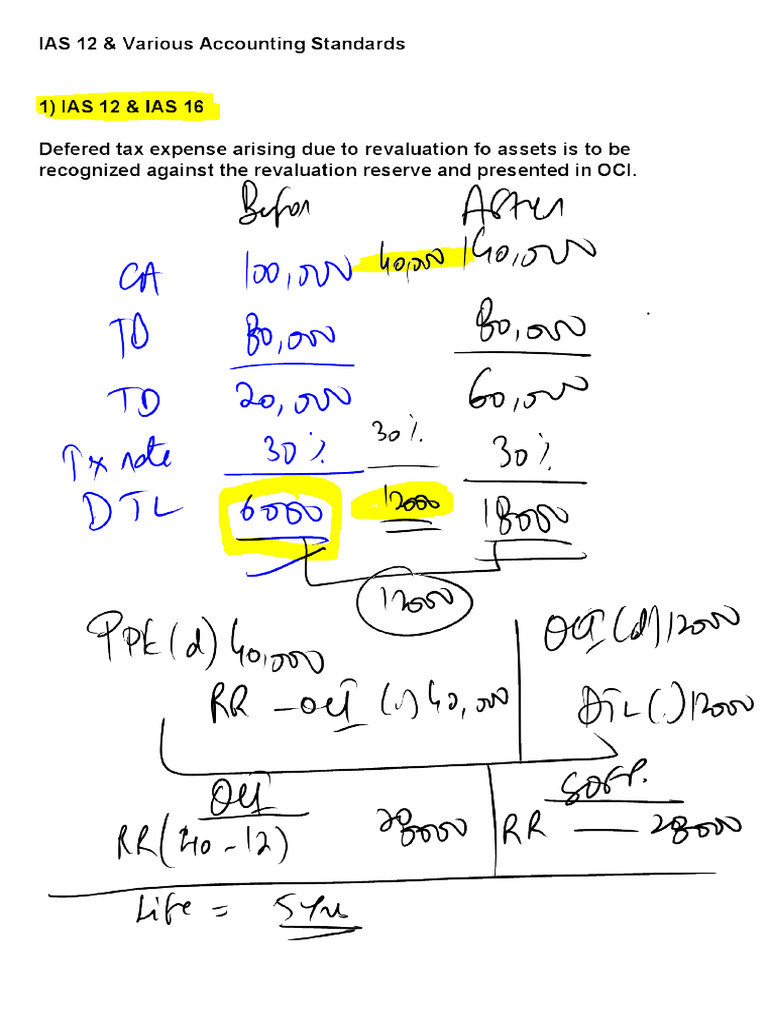 IAS 12 & Various Accounting Standards
1) IAS 12 & IAS 16
Defered tax expense arising due to revaluation fo assets is to be
recognized against the revaluation reserve and presented in OCI.
Befor After
CA 100,000 40,000 140,000
TD 80,000 80,000
TD 20,000 60,000
Tx rate 30% 30% 30%
DTL 6000 12000 18000
12000
PPE (d) 40,000 OCI (d) 12000
RR - OCI (c) 40,000 DTL (c) 12000
OCI SOFP.
RR (40-12) 28000 RR — 28000
Life = 5 yrs